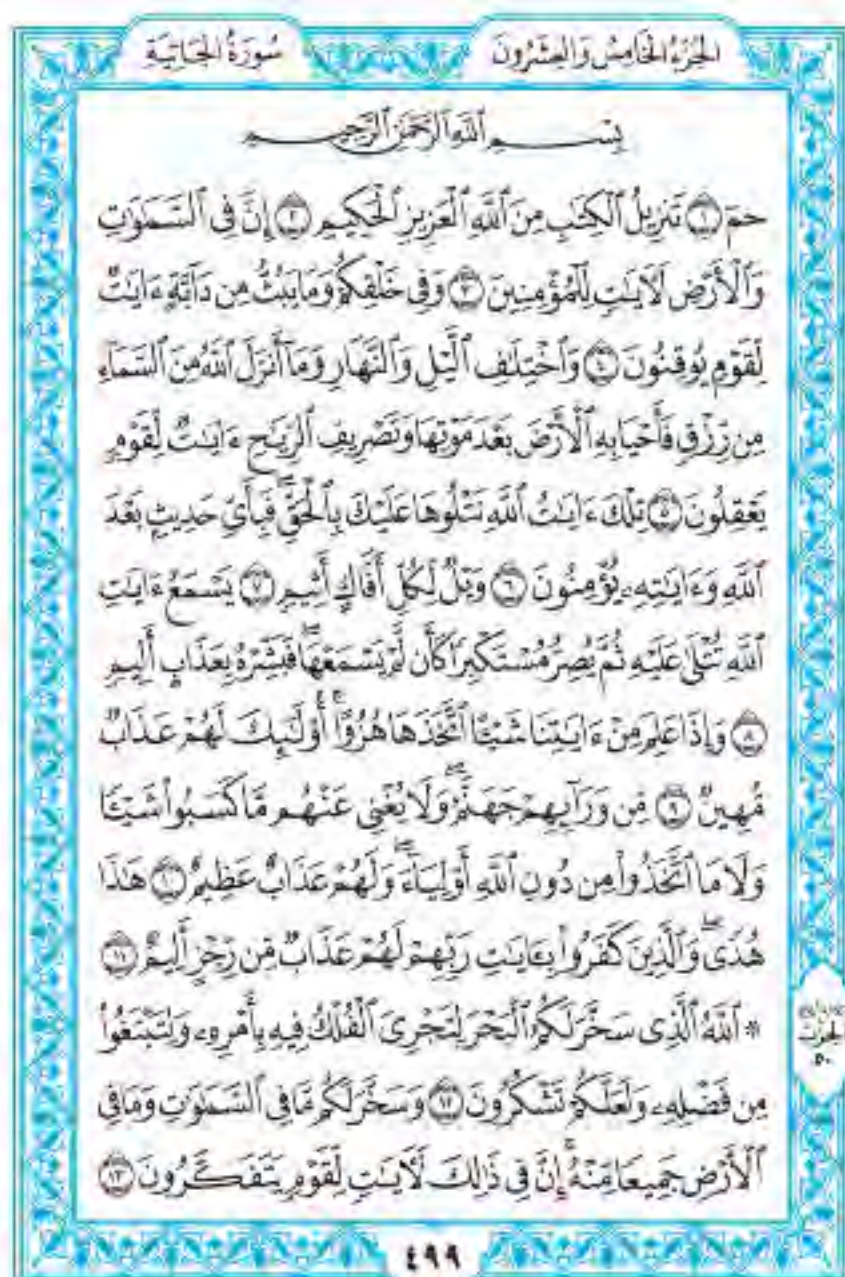 الجزء الخامس والعشرون
سورة الجاثية
بِسْمِ ٱللَّهِ ٱلرَّحْمَٰنِ ٱلرَّحِيمِ
حمٓ ١ تَنزِيلُ ٱلْكِتَٰبِ مِنَ ٱللَّهِ ٱلْعَزِيزِ ٱلْحَكِيمِ ٢ إِنَّ فِى ٱلسَّمَٰوَٰتِ
وَٱلْأَرْضِ لَءَايَٰتٍ لِّلْمُؤْمِنِينَ ٣ وَفِى خَلْقِكُمْ وَمَا يَبُثُّ مِن دَآبَّةٍ ءَايَٰتٌ
لِّقَوْمٍ يُوقِنُونَ ٤ وَٱخْتِلَٰفِ ٱلَّيْلِ وَٱلنَّهَارِ وَمَآ أَنزَلَ ٱللَّهُ مِنَ ٱلسَّمَآءِ
مِن رِّزْقٍ فَأَحْيَا بِهِ ٱلْأَرْضَ بَعْدَ مَوْتِهَا وَتَصْرِيفِ ٱلرِّيَٰحِ ءَايَٰتٌ لِّقَوْمٍ
يَعْقِلُونَ ٥ تِلْكَ ءَايَٰتُ ٱللَّهِ نَتْلُوهَا عَلَيْكَ بِٱلْحَقِّ ۖ فَبِأَىِّ حَدِيثٍۭ بَعْدَ
ٱللَّهِ وَءَايَٰتِهِۦ يُؤْمِنُونَ ٦ وَيْلٌ لِّكُلِّ أَفَّاكٍ أَثِيمٍ ٧ يَسْمَعُ ءَايَٰتِ
ٱللَّهِ تُتْلَىٰ عَلَيْهِ ثُمَّ يُصِرُّ مُسْتَكْبِرًا كَأَن لَّمْ يَسْمَعْهَا ۖ فَبَشِّرْهُ بِعَذَابٍ أَلِيمٍ
٨ وَإِذَا عَلِمَ مِنْ ءَايَٰتِنَا شَيْـًٔا ٱتَّخَذَهَا هُزُوًا ۚ أُو۟لَٰٓئِكَ لَهُمْ عَذَابٌ
مُّهِينٌ ٩ مِّن وَرَآئِهِمْ جَهَنَّمُ ۖ وَلَا يُغْنِى عَنْهُم مَّا كَسَبُوا۟ شَيْـًٔا
وَلَا مَا ٱتَّخَذُوا۟ مِن دُونِ ٱللَّهِ أَوْلِيَآءَ ۖ وَلَهُمْ عَذَابٌ عَظِيمٌ ١٠ هَٰذَا
هُدًى ۖ وَٱلَّذِينَ كَفَرُوا۟ بِـَٔايَٰتِ رَبِّهِمْ لَهُمْ عَذَابٌ مِّن رِّجْزٍ أَلِيمٌ ١١
۞ ٱللَّهُ ٱلَّذِى سَخَّرَ لَكُمُ ٱلْبَحْرَ لِتَجْرِىَ ٱلْفُلْكُ فِيهِ بِأَمْرِهِۦ وَلِتَبْتَغُوا۟
مِن فَضْلِهِۦ وَلَعَلَّكُمْ تَشْكُرُونَ ١٢ وَسَخَّرَ لَكُم مَّا فِى ٱلسَّمَٰوَٰتِ وَمَا فِى
ٱلْأَرْضِ جَمِيعًا مِّنْهُ ۚ إِنَّ فِى ذَٰلِكَ لَءَايَٰتٍ لِّقَوْمٍ يَتَفَكَّرُونَ ١٣
الحزب
٥٠
٤٩٩